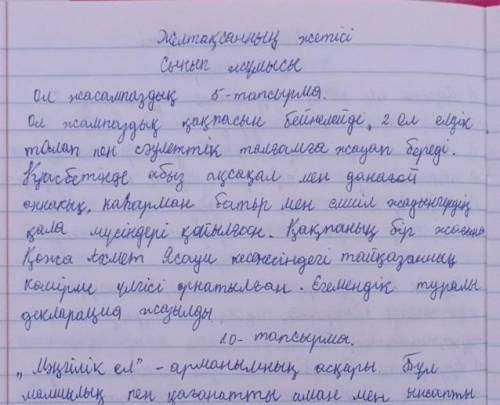 Желтоқсанның жетісі
Сынып жұмысы
Ол жасампаздық 5-тапсырма.
Ол жампаздық қақпасын бейнелейді, 2 ол елдік
талап пен сәулеттік талғамға жауап береді.
абыз ақсақал мен данагөй
каһарман батыр мен
қала мүсіндері қойылған. Қақпаның бір жағына
Қожа Ахмет Ясауи кесенесіндегі тайқазанның
көшірме үлгісі орнатылған. Егемендік туралы
декларация жазылды
10-тапсырма.
„Мәңгілік ел" - арманымның асқары Бұл
пен қағанатты иман мен ынсапты